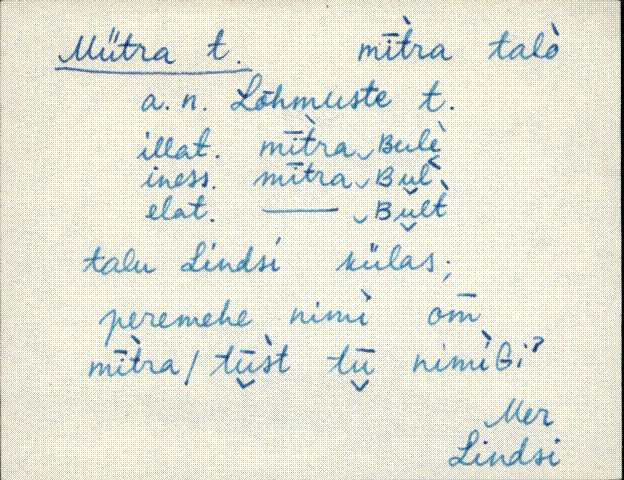 Mütra t. mī̀tra talò
a.n. Lõhmuste t.
illat. mī̀tra‿Bulè
iness. mī̀tra‿Bul̀
elat. ——‿Bŭlt̀
talu Lindsi külas;
peremehe nimì om̄
mī̀tra / tǖ̀st tū nimìGi?
Mer
Lindsi